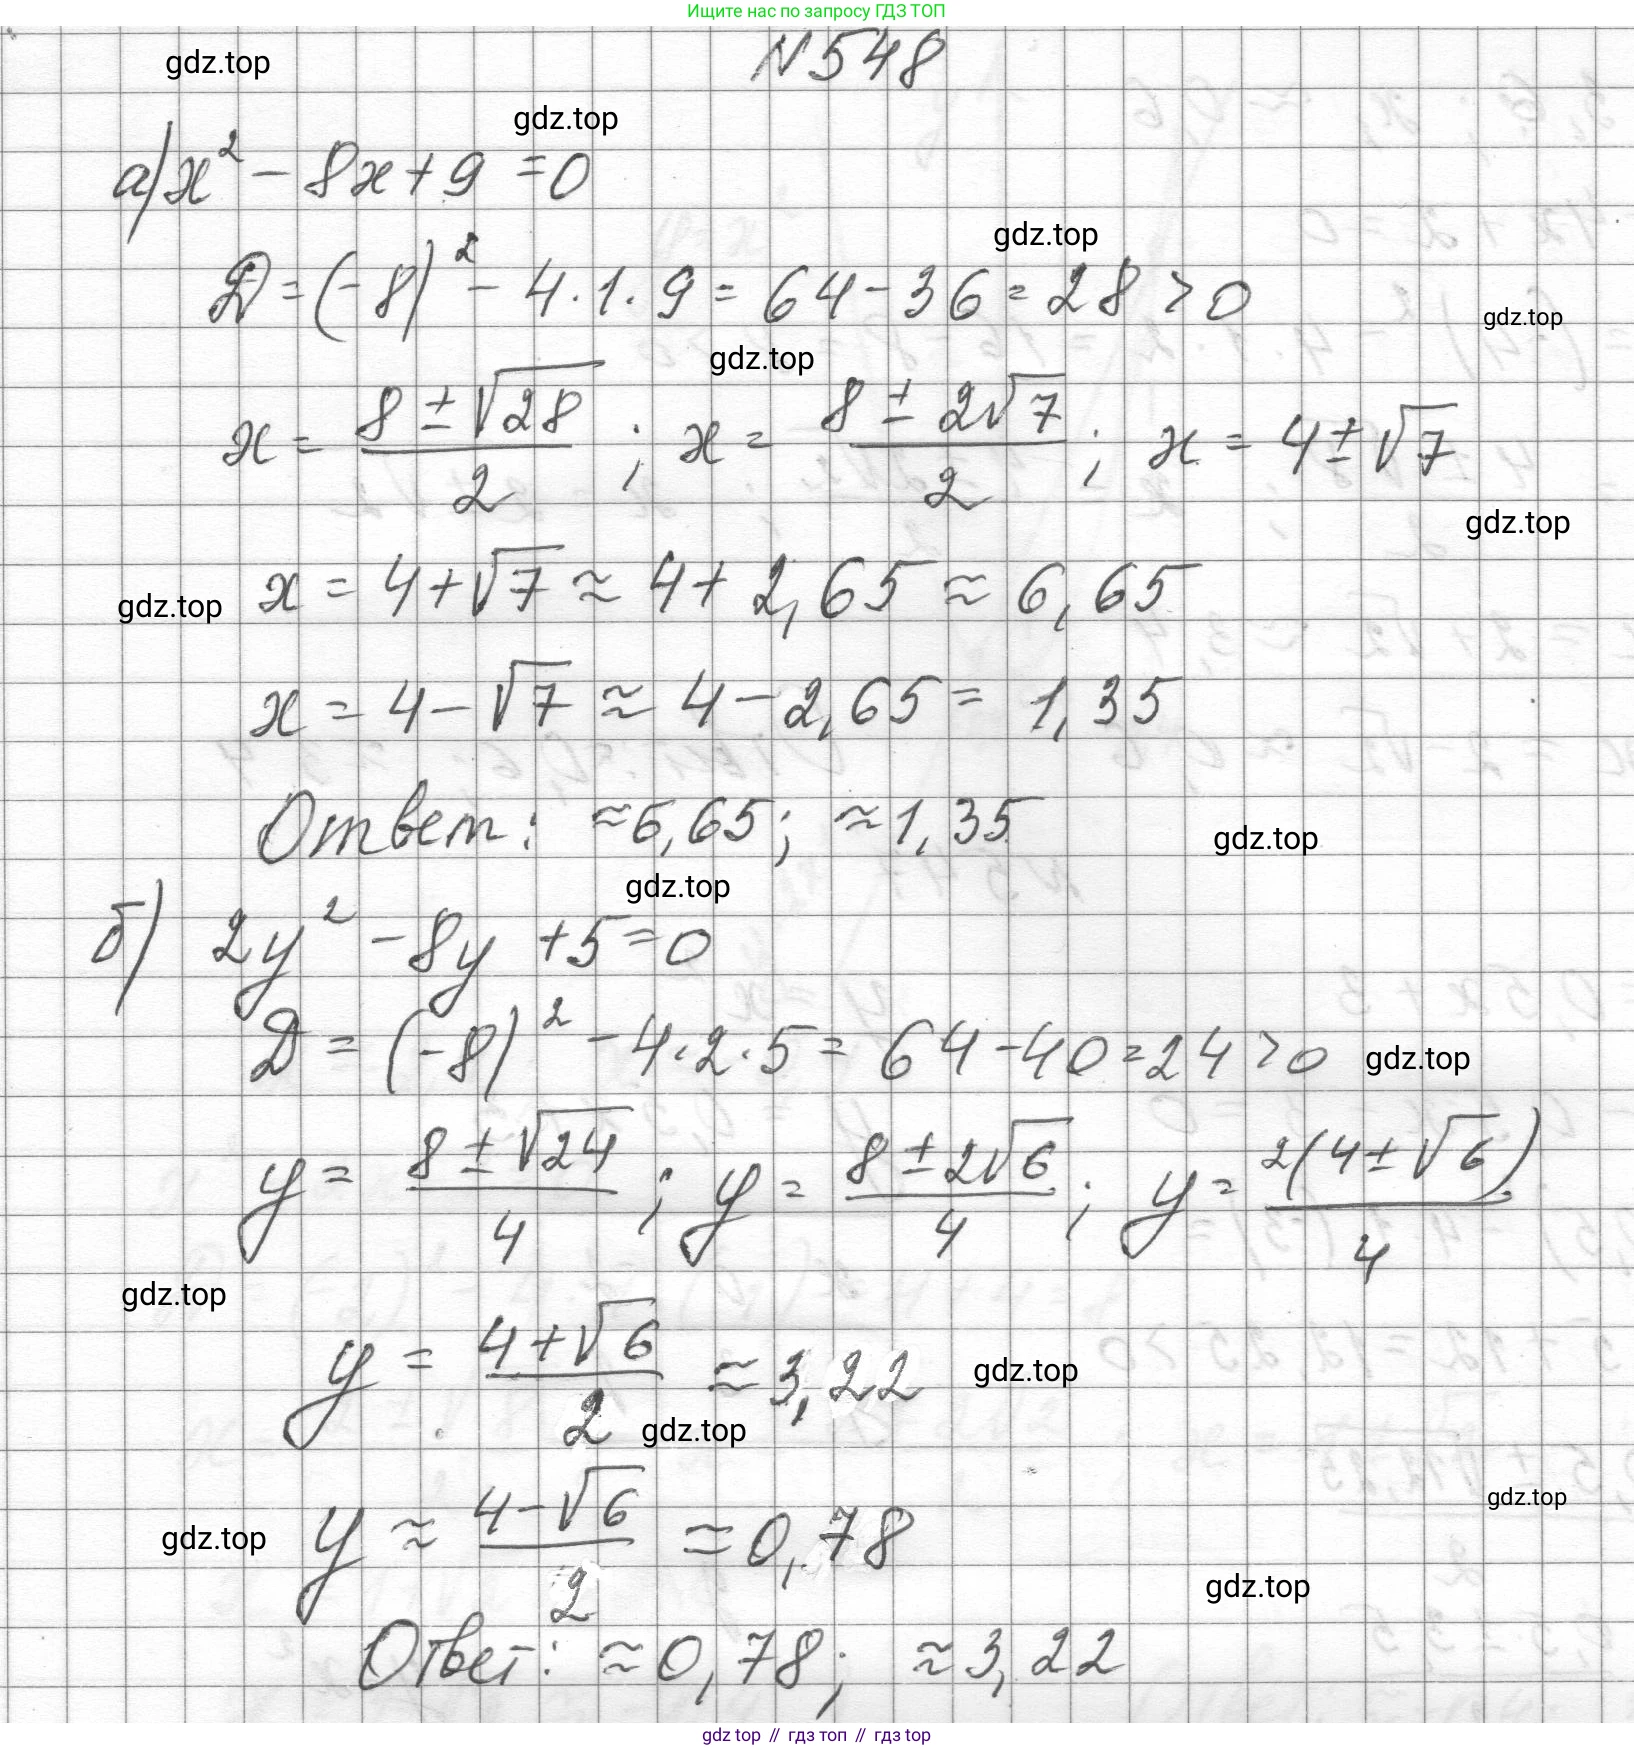 Ищите нас по запросу ГДЗ ТОП
N548
gdz.top
gdz.top
а) x² - 8x + 9 = 0
gdz.top
Д = (-8)² - 4·1·9 = 64 - 36 = 28 > 0
gdz.top
gdz.top
x = (8 ± √28)/2 ; x = (8 ± 2√7)/2 ; x = 4 ± √7
gdz.top
gdz.top x = 4 + √7 ≈ 4 + 2,65 ≈ 6,65
x = 4 - √7 ≈ 4 - 2,65 = 1,35
Ответ: ≈6,65; ≈1,35
gdz.top
gdz.top
б) 2y² - 8y + 5 = 0
Д = (-8)² - 4·2·5 = 64 - 40 = 24 > 0 gdz.top
y = (8 ± √24)/4 ; y = (8 ± 2√6)/4 ; y = 2(4 ± √6)/4
gdz.top
y = (4 + √6)/2 ≈ 3,22 gdz.top
gdz.top
gdz.top
gdz.top y ≈ (4 - √6)/2 ≈ 0,78
gdz.top
Ответ: ≈0,78; ≈3,22
gdz top // гдз топ // gdz top